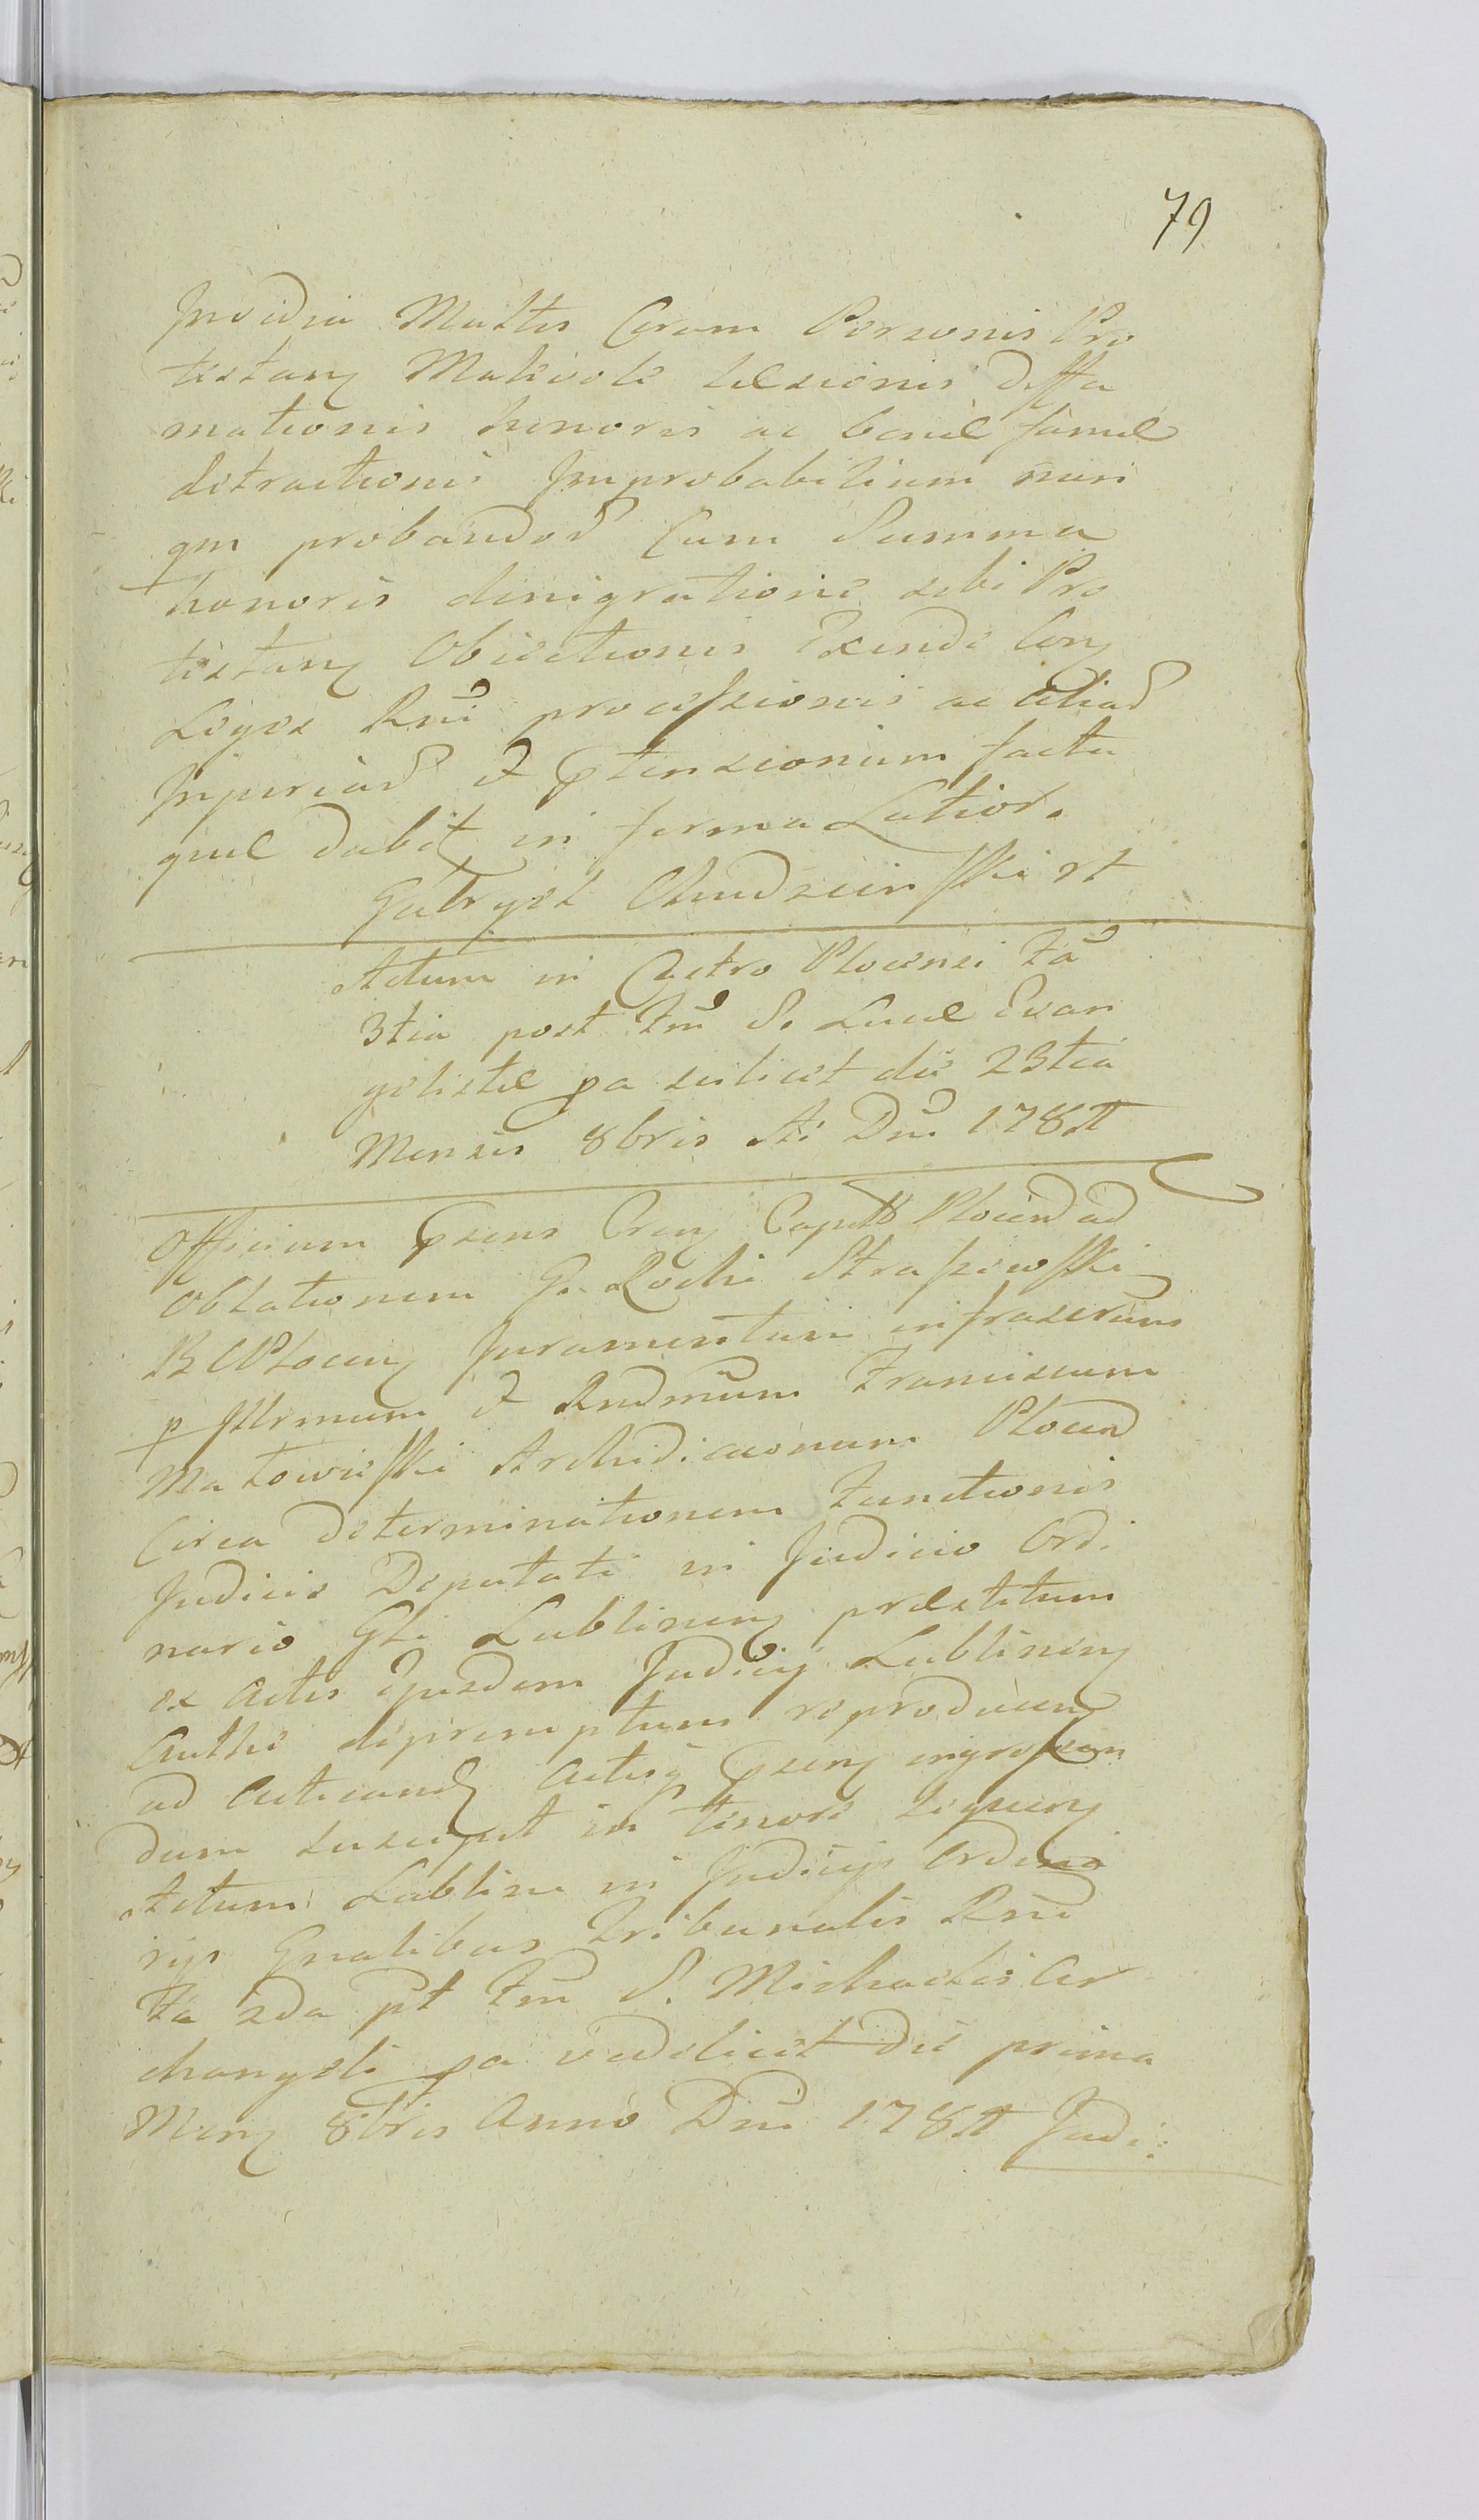 79
Invidia Multis Coram Personis Pro
testan Malevole læsionis diffa
mationis honoris ac bonæ famæ
detractionis Improbabilium nun
qm probandor Cum Summa
honoris denigratione sibi Pro
testan Obiectionis Exinde Con
Leges Rni processionis ac aliar
Injuriar et ptensionum facta
quæ dabit in forma Latior.
Gabryel Chudzinsski
Actum in Castro Plocensi Fa
3tia post Fm S. Lucæ Evan
gelistæ pa scilicet die 23tia
Mensis 8bris Ai Dni 178
Officium psens Cren Capit Plocen ad
Oblationem G. Rochi Straszewsski
B C Plocen Juramentum infrascrum
p Illrmum et Rndmum Franciscum
Matowiesski Archidiaconum Plocen
Circa determinationem Functionis
Judicis Deputati in Judicio Ordi
nario Gli Lublinen præstitum
ex Actis Ejusdem Judicij Lublinen
Authe depromptum reproducen
ad Acticand Actisq psen ingrossan
dum suscepit in tenore sequen
Actum Lublini in Judicijs Ordina
rijs Gnalibus Tribunalis Rni
Fa 2da pt Fm S. Michaelis Ar
changeli pa videlicet die prima
Men 8bris Anno Dni 178 Judi: